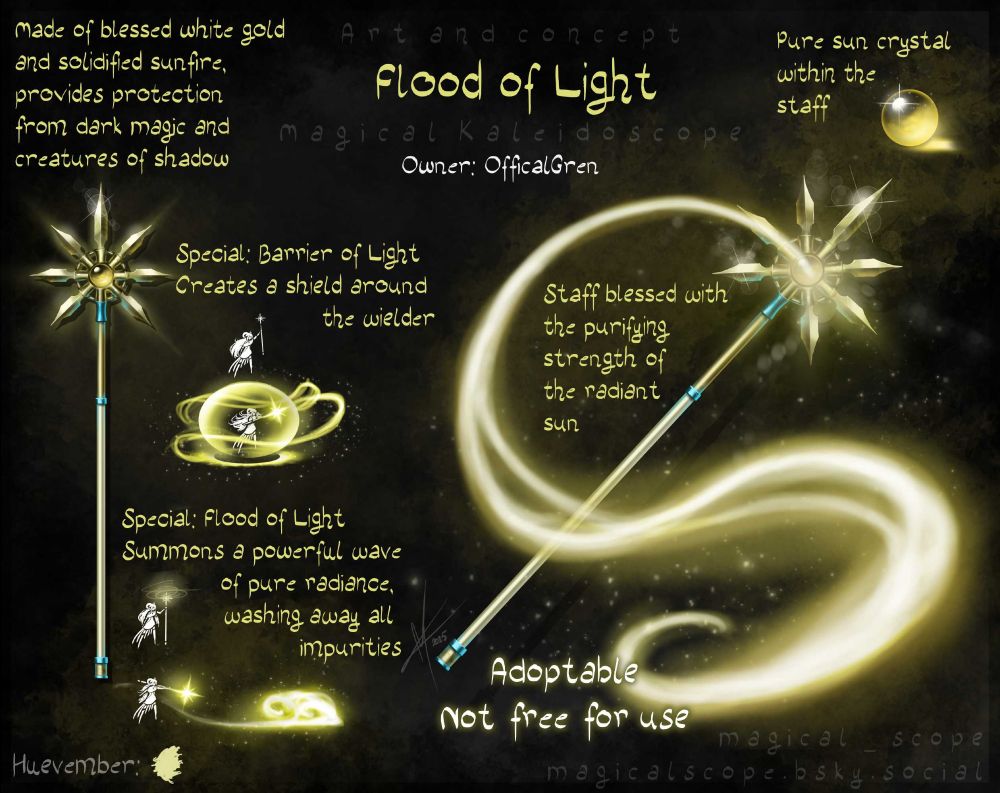 Made of blessed white gold
and solidified sunfire,
provides protection
from dark magic and
creatures of shadow
Art and concept
Flood of Light
magical Kaleidoscope
Owner: OfficalGren
Pure sun crystal
within the
staff
Special: Barrier of Light
Creates a shield around
the wielder
Staff blessed with
the purifying
strength of
the radiant
sun
Special: Flood of Light
Summons a powerful wave
of pure radiance,
washing away all
impurities
2025
Adoptable
Not free for use
magical _ scope
magicalscope.bsky.social
Huevember: